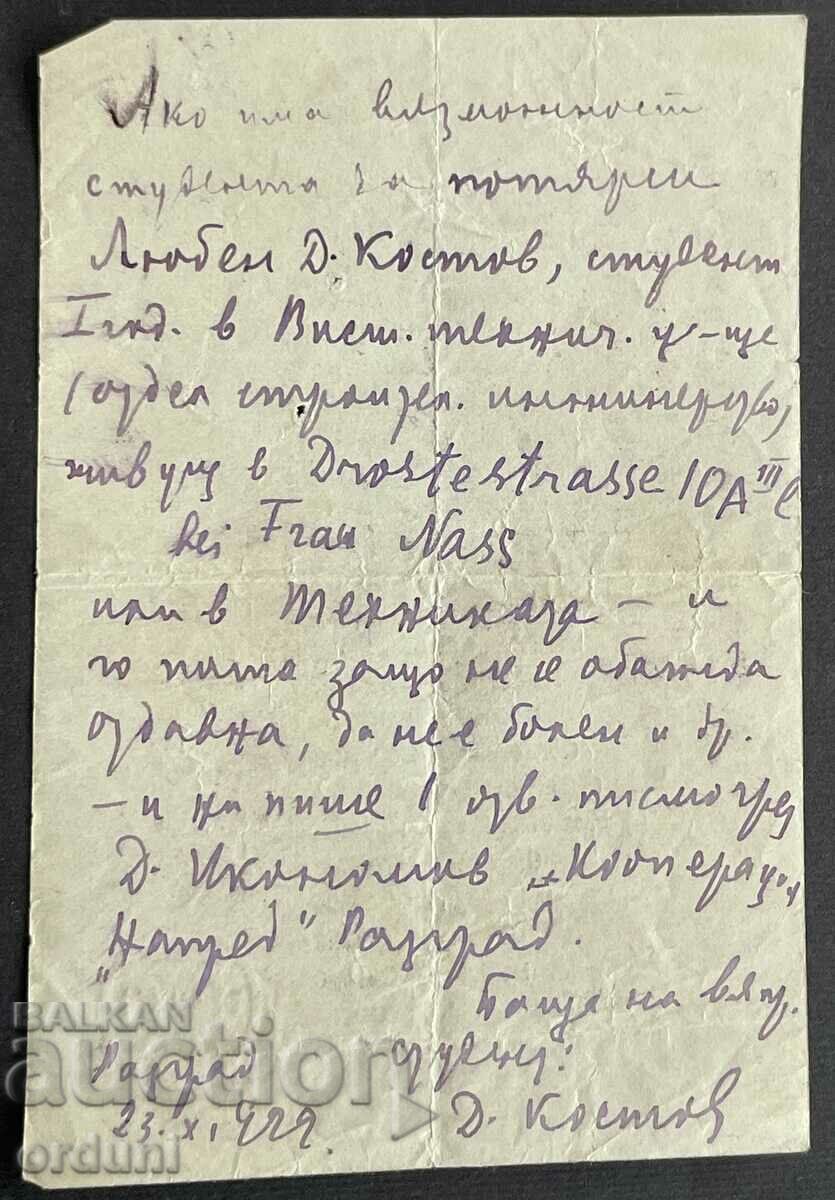 Ако има вязможност
студента да потярси
Любен Д. Костов, студент
I год. в Висш. технич. у-ще
(отдел строител. инжинерство,
живущ в Drostestrasse 10A III l
bei Frau Nass
или в Техниката – и
го пита защо не се обажда
отдавна, да не е болен и др.
– и ни пише 1 отв. писмо чрез
Д. Икономов „Кооперация
„Напред" Разград.
Баща на вяпр.
студент:
Разград
23.XI.929.
Д. Костов
BALKAN
auction
orduni